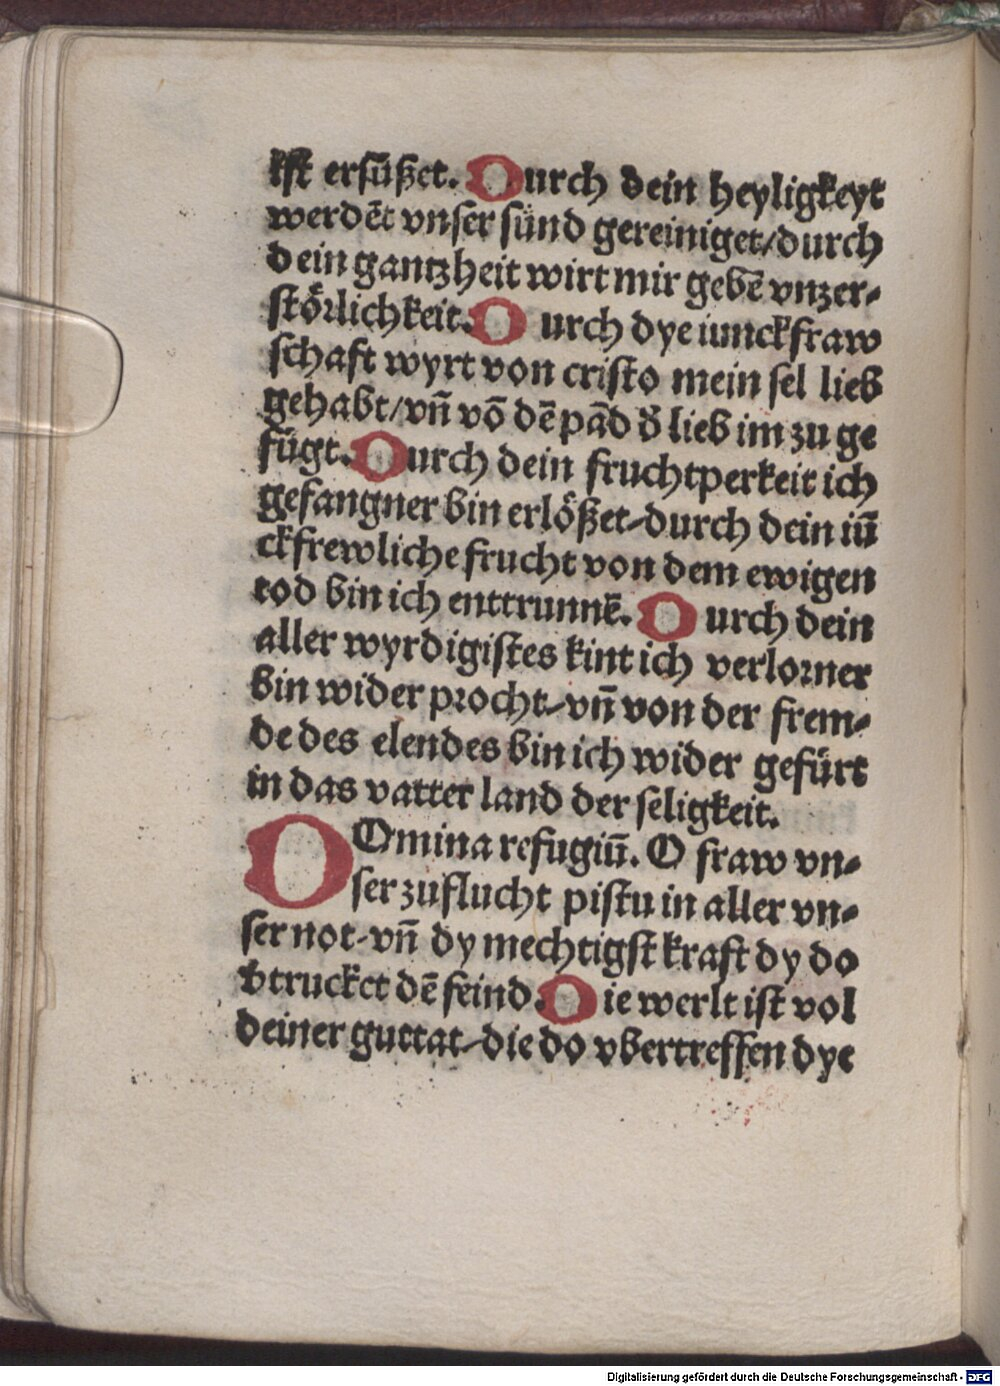 kſt erſüßet. Durch dein heyligkeyt
werdēt vnſer ſünd gereiniget/durch
dein gantzheit wirt mir gebē vnzer-
ſtörlichkeit. Durch dye iunckfraw
ſchaft wyrt von criſto mein ſel lieb
gehabt/vn̄ vō dē pād d̓ lieb im zu ge
fügt. Durch dein fruchtperkeit ich
gefangner bin erlößet-durch dein iū
ckfrewliche frucht von dem ewigen
tod bin ich enttrunnē. Durch dein
aller wyrdigiſtes kint ich verlorner
bin wider procht-vn̄ von der frem-
de des elendes bin ich wider gefürt
in das vatter land der ſeligkeit.
DOmina refugiū. O fraw vn-
ſer zuflucht piſtu in aller vn-
ſer not-vn̄ dy mechtigſt kraft dy do
vtrucket dē feind. Die werlt iſt vol
deiner guttat-die do vbertreffen dye
Digitalisierung gefördert durch die Deutsche Forschungsgemeinschaft - DFG